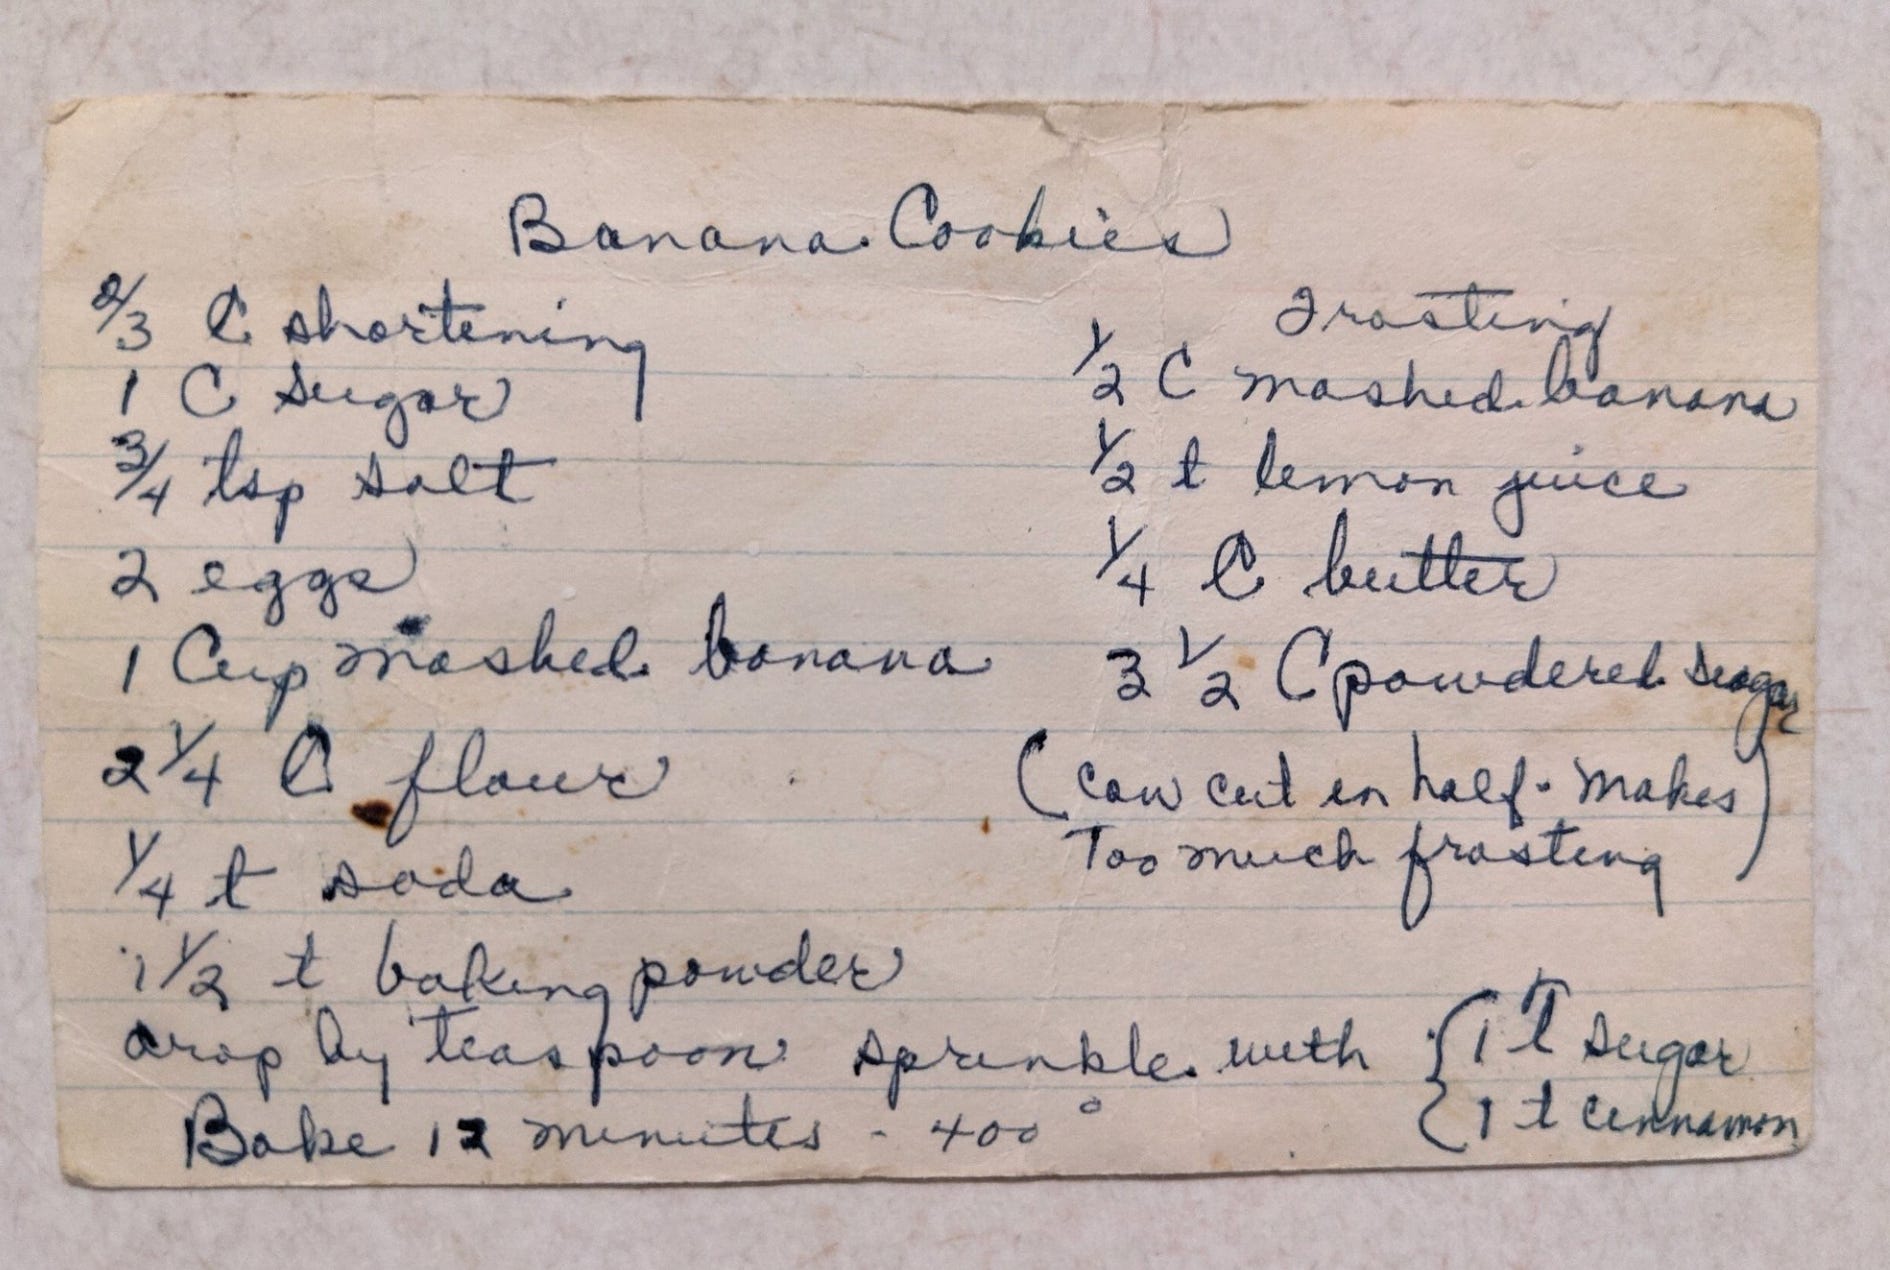 Banana Cookies
2/3 C shortening
1 C sugar
3/4 tsp salt
2 eggs
1 Cup mashed banana
2 1/4 C flour
1/4 t soda
1 1/2 t baking powder
Frosting
1/2 C mashed banana
1/2 t lemon juice
1/4 C butter
3 1/2 C powdered sugar
(can cut in half - makes
Too much frosting)
drop by teaspoon sprinkle with { 1 T sugar
Bake 12 minutes - 400° { 1 t cinnamon